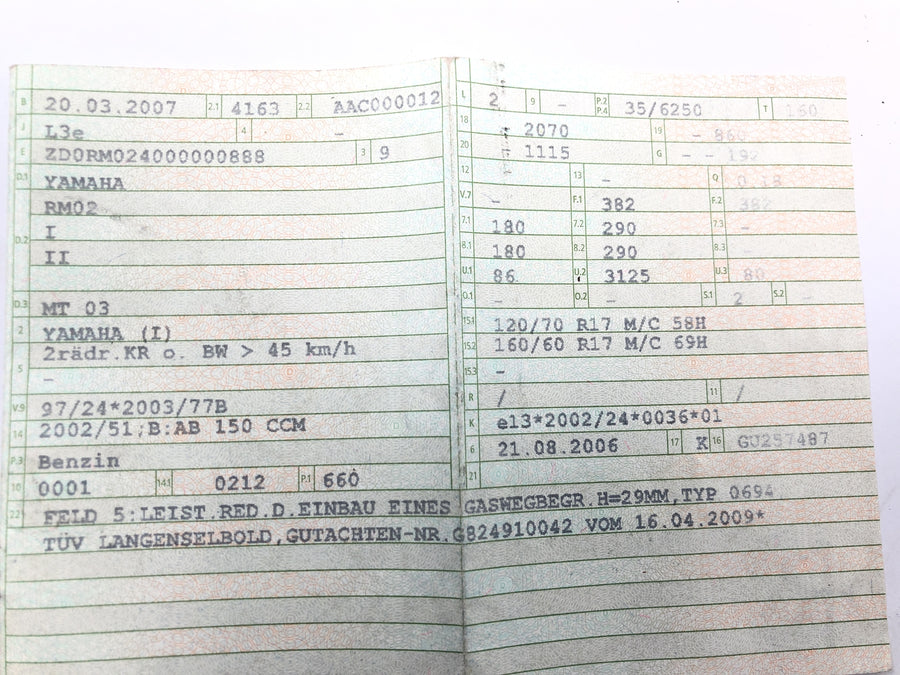 B 20.03.2007 2.1 4163 2.2 AAC000012
J L3e 4 –
E ZD0RM024000000888 3 9
D.1 YAMAHA
RM02
D.2 I
II
D.3 MT 03
2 YAMAHA (I)
2rädr.KR o. BW > 45 km/h
5 –
V.9 97/24*2003/77B
14 2002/51;B:AB 150 CCM
P.3 Benzin
10 0001 14.1 0212 P.1 660
L 2 9 – P.2 P.4 35/6250 T 160
18 – 2070 19 – 860
20 – 1115 G – – 192
12 – 13 – Q 0.18
V.7 – F.1 382 F.2 382
7.1 180 7.2 290 7.3 –
8.1 180 8.2 290 8.3 –
U.1 86 U.2 3125 U.3 80
O.1 – O.2 – S.1 2 S.2 –
15.1 120/70 R17 M/C 58H
15.2 160/60 R17 M/C 69H
15.3 –
R / 11 /
K e13*2002/24*0036*01
6 21.08.2006 17 K 16 GU257487
21
22 FELD 5:LEIST.RED.D.EINBAU EINES GASWEGBEGR.H=29MM,TYP 0694
TÜV LANGENSELBOLD,GUTACHTEN-NR.G824910042 VOM 16.04.2009*